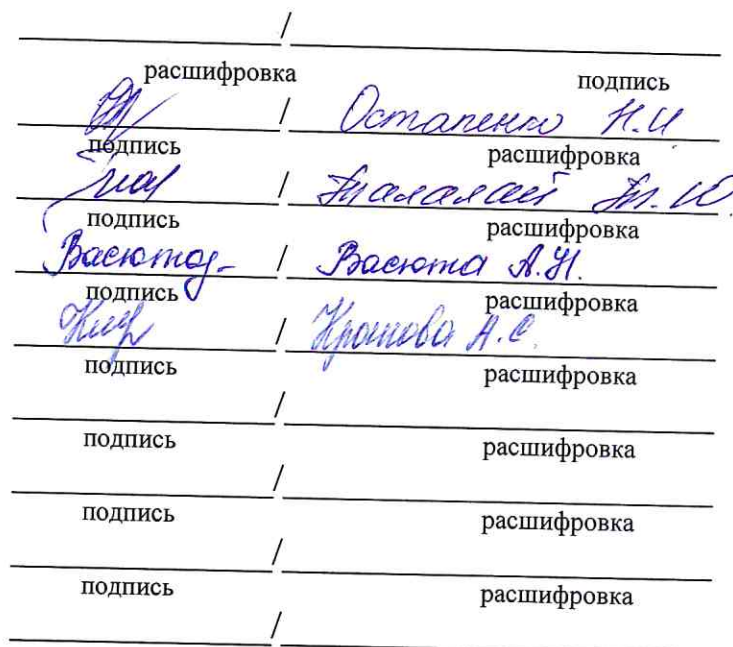 /
расшифровка подпись
/ Остапенко Н.И
подпись расшифровка
/ Талалай Т.Ю.
подпись расшифровка
Васюта / Васюта А.Н.
подпись расшифровка
А.С.
подпись расшифровка
/
подпись расшифровка
/
подпись расшифровка
/
подпись расшифровка
/